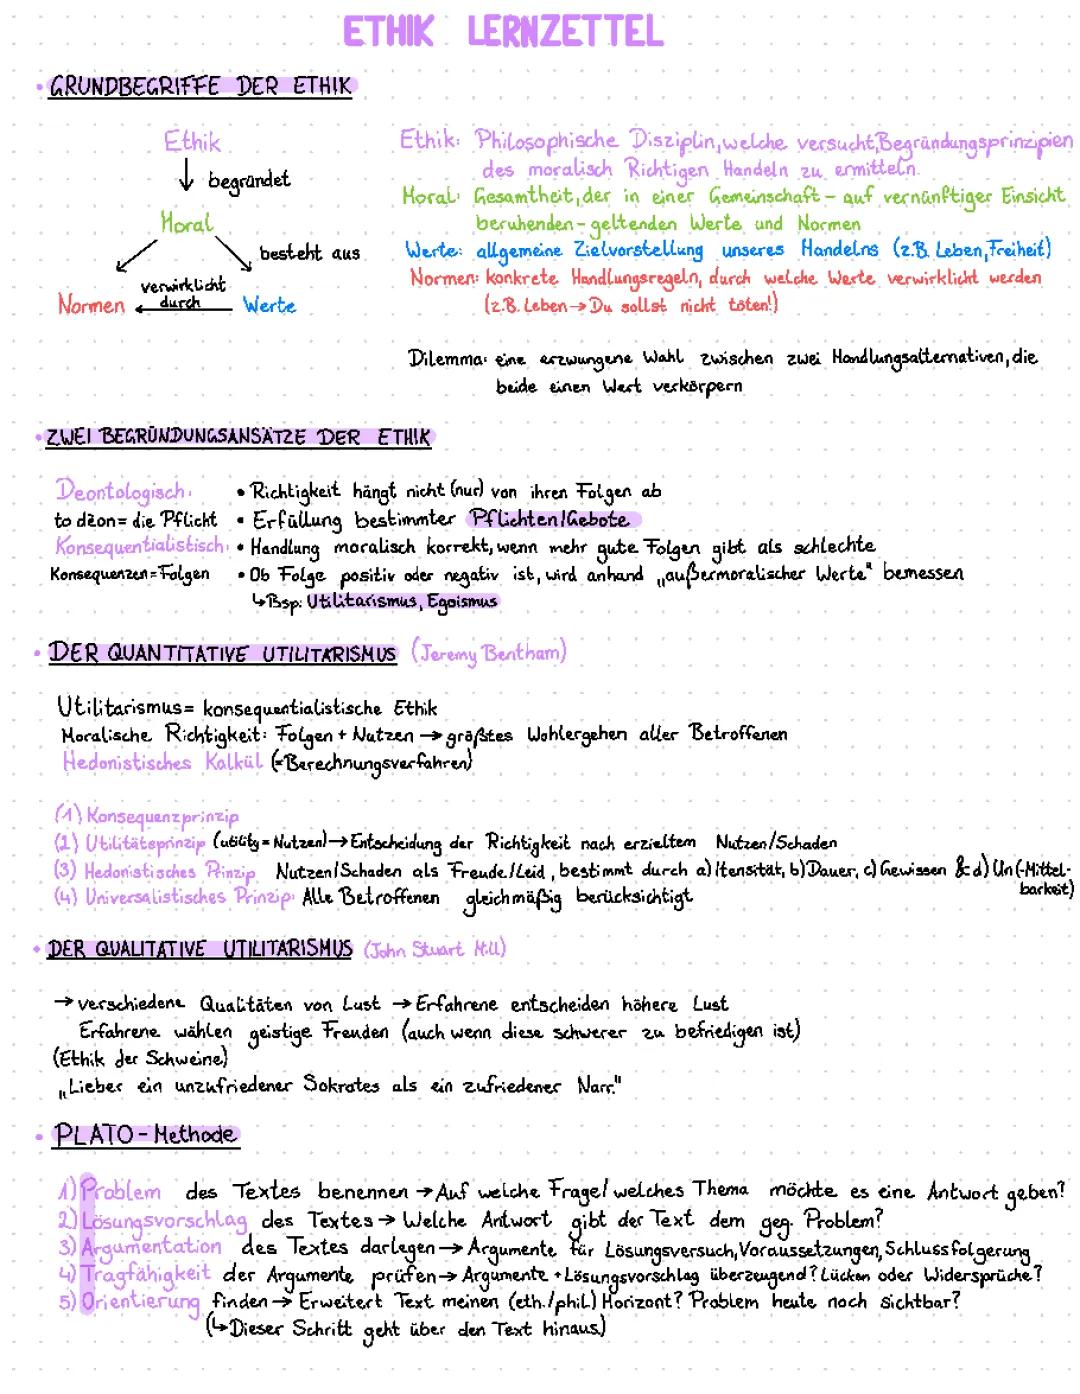 ETHIK LERNZETTEL
• GRUNDBEGRIFFE DER ETHIK
Ethik
begründet
Moral
besteht aus
verwirklicht
durch
Normen
Werte
Ethik: Philosophische Disziplin, welche versucht, Begründungsprinzipien
des moralisch Richtigen Handeln zu ermitteln.
Moral: Gesamtheit, der in einer Gemeinschaft - auf vernünftiger Einsicht
beruhenden - geltenden Werte und Normen
Werte: allgemeine Zielvorstellung unseres Handelns (z.B. Leben, Freiheit)
Normen: konkrete Handlungsregeln, durch welche Werte verwirklicht werden
(z.B. Leben → Du sollst nicht töten!)
Dilemma: eine erzwungene Wahl zwischen zwei Handlungsalternativen, die
beide einen Wert verkörpern
• ZWEI BEGRÜNDUNGSANSÄTZE DER ETHIK
Deontologisch: • Richtigkeit hängt nicht (nur) von ihren Folgen ab
to dèon = die Pflicht • Erfüllung bestimmter Pflichten/Gebote
Konsequentialistisch: • Handlung moralisch korrekt, wenn mehr gute Folgen gibt als schlechte
Konsequenzen = Folgen • Ob Folge positiv oder negativ ist, wird anhand „außermoralischer Werte" bemessen
↳ Bsp: Utilitarismus, Egoismus
• DER QUANTITATIVE UTILITARISMUS (Jeremy Bentham)
Utilitarismus = konsequentialistische Ethik
Moralische Richtigkeit: Folgen + Nutzen → größtes Wohlergehen aller Betroffenen
Hedonistisches Kalkül (= Berechnungsverfahren)
(1) Konsequenzprinzip
(2) Utilitätsprinzip (utility = Nutzen) → Entscheidung der Richtigkeit nach erzieltem Nutzen/Schaden
(3) Hedonistisches Prinzip Nutzen/Schaden als Freude/Leid, bestimmt durch a) Itensität, b) Dauer, c) Gewissen & d) (Un(-Mittel-
barkeit)
(4) Universalistisches Prinzip: Alle Betroffenen gleichmäßig berücksichtigt
• DER QUALITATIVE UTILITARISMUS (John Stuart Mill)
→ verschiedene Qualitäten von Lust → Erfahrene entscheiden höhere Lust
Erfahrene wählen geistige Freuden (auch wenn diese schwerer zu befriedigen ist)
(Ethik der Schweine)
„Lieber ein unzufriedener Sokrates als ein zufriedener Narr."
• PLATO - Methode
1) Problem des Textes benennen → Auf welche Frage/welches Thema möchte es eine Antwort geben?
2) Lösungsvorschlag des Textes → Welche Antwort gibt der Text dem geg. Problem?
3) Argumentation des Textes darlegen → Argumente für Lösungsversuch, Voraussetzungen, Schlussfolgerung
4) Tragfähigkeit der Argumente prüfen → Argumente + Lösungsvorschlag überzeugend? Lücken oder Widersprüche?
5) Orientierung finden → Erweitert Text meinen (eth./phil.) Horizont? Problem heute noch sichtbar?
(↳ Dieser Schritt geht über den Text hinaus.)